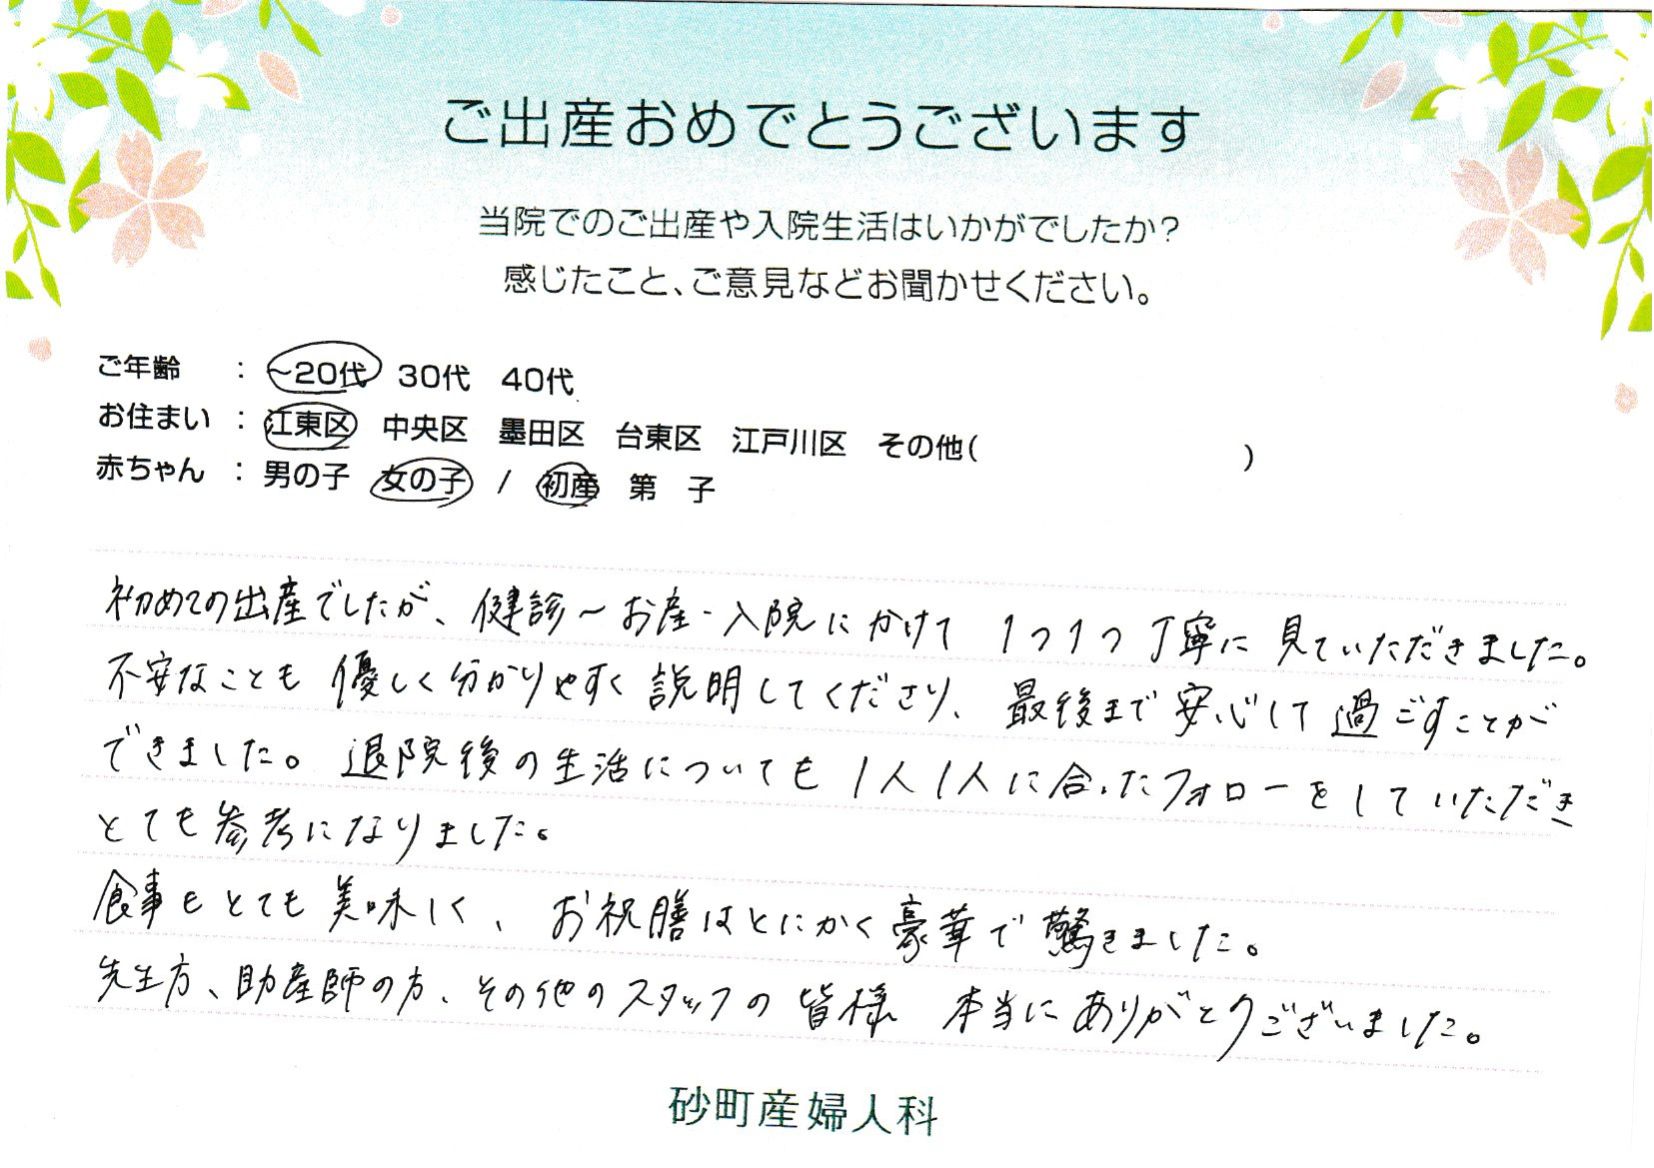 ご出産おめでとうございます
当院でのご出産や入院生活はいかがでしたか?
感じたこと、ご意見などお聞かせください。
ご年齢 : ~20代 30代 40代
お住まい : 江東区 中央区 墨田区 台東区 江戸川区 その他( )
赤ちゃん : 男の子 女の子 / 初産 第 子
初めての出産でしたが、健診~お産・入院にかけて 1つ1つ丁寧に見ていただきました。
不安なことも優しく分かりやすく説明してくださり、最後まで安心して過ごすことが
できました。退院後の生活についても1人1人に合ったフォローをしていただき
とても参考になりました。
食事もとても美味しく、お祝膳はとにかく豪華で驚きました。
先生方、助産師の方、その他のスタッフの皆様 本当にありがとうございました。
砂町産婦人科